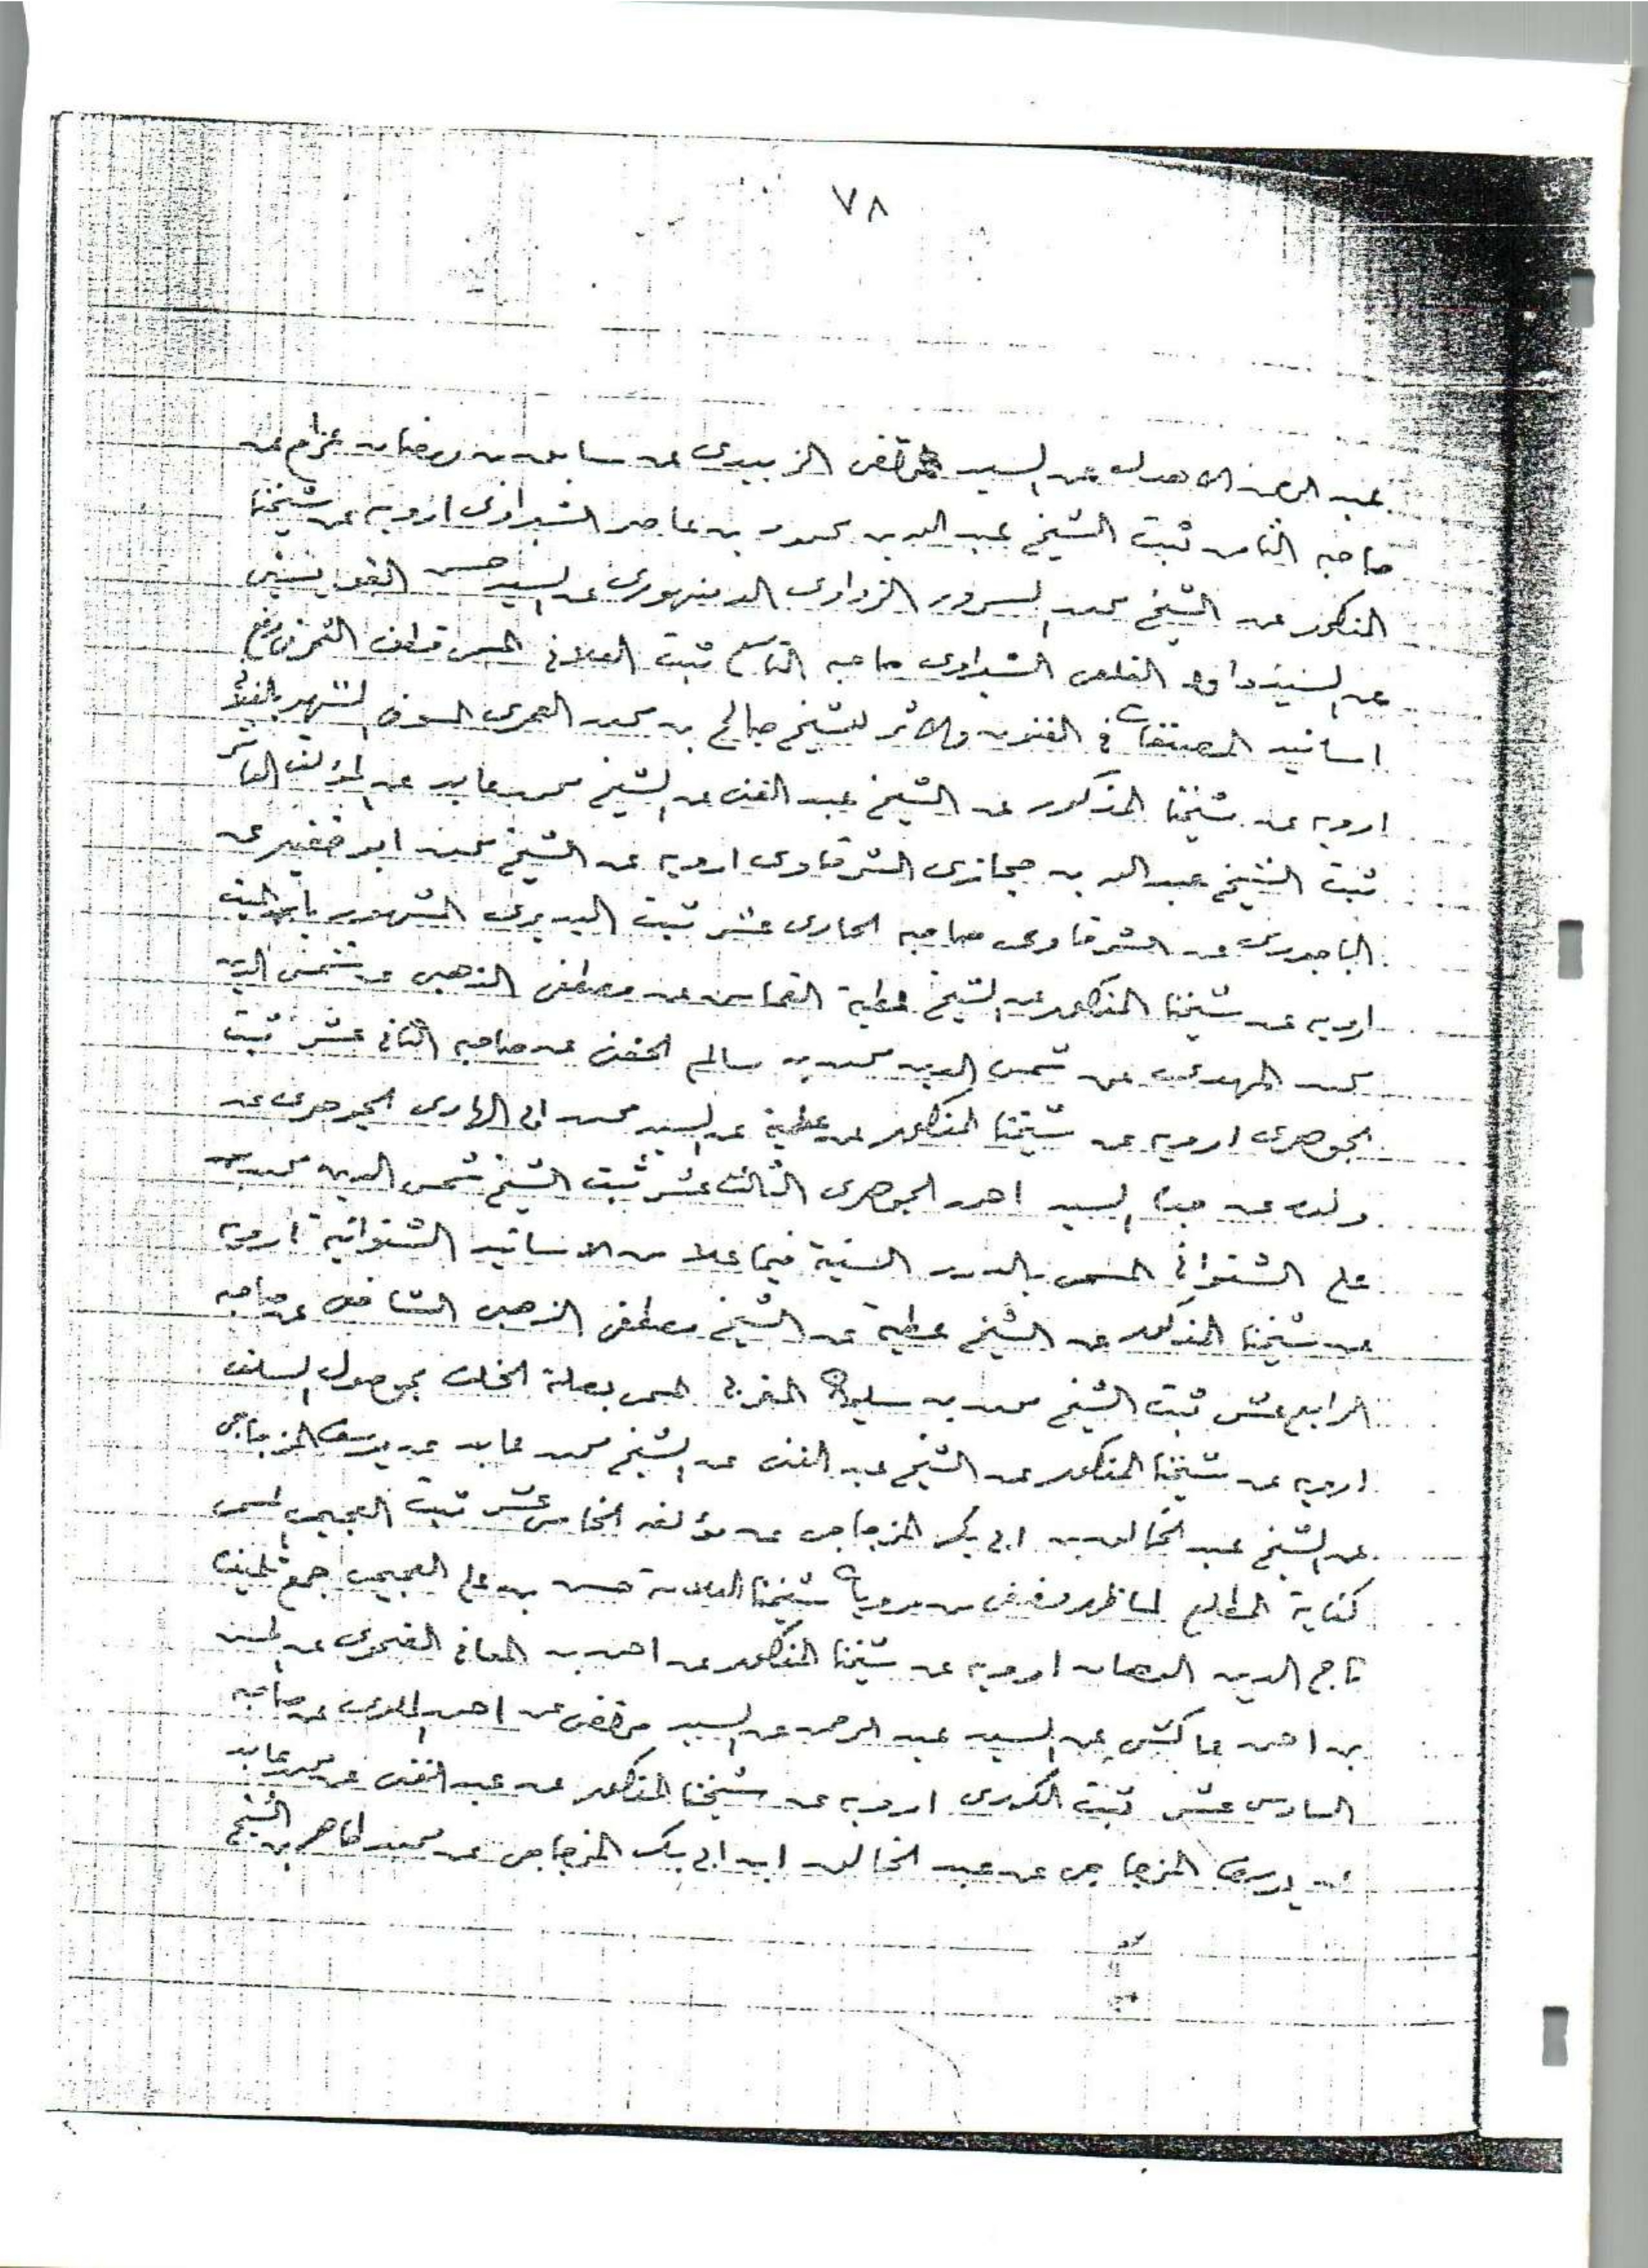 ٧٨
عبد الرحمن الاهدل عن السيد مرتضى الزبيدي عن سابق بن رمضان عزام عن
صاحبه الثامن ثبت الشيخ عبد الله بن محمود بن عامر الشبراوى ارويه عن شيخنا
المذكور عن الشيخ محمد السرور الزواوى الدمنهورى عن السيد حسن القويسنى
عن السيد داود القلعى الشبراوى صاحبه التاسع ثبت الفلانى المسمى قطف الثمر فى رفع
اسانيد المصنفات فى الفنون والاثر للشيخ صالح بن محمد العمرى المسوفى الشهير بالفلانى
ارويه عن شيخنا المذكور عن الشيخ عبد الغنى عن الشيخ محمد عابد عن المؤلف العاشر
ثبت الشيخ عبد الله بن حجازى الشرقاوى ارويه عن الشيخ محمد ابو خضير عن
الباجورى عن الشرقاوى صاحبه الحادى عشر ثبت البديرى المشهور بابن الميت
ارويه عن شيخنا المذكور عن الشيخ عطية القماش عن مصطفى الذهبى عن شمس الدين
محمد المهدى عن شمس الدين محمد بن سالم الحفنى عن صاحبه الثانى عشر ثبت
الجوهرى ارويه عن شيخنا المذكور عن عطية عن السيد محمد ابى الهادى الجوهرى عن
ولده عن جده السيد احمد الجوهرى الثالث عشر ثبت الشيخ شمس الدين محمد بن
على الشنوانى المسمى بالدرر السنية فيما علا من الاسانيد الشنوانية ارويه
عن شيخنا المذكور عن الشيخ عطية عن الشيخ مصطفى الذهبى الشافعى عن صاحبه
الرابع عشر ثبت الشيخ محمد بن سليمان المغربى المسمى بصلة الخلف بموصول السلف
ارويه عن شيخنا المذكور عن الشيخ عبد الغنى عن الشيخ محمد عابد عن يوسف المزجاجى
عن الشيخ عبد الخالق بن ابى بكر المزجاجى عن مؤلفه الخامس عشر ثبت العجيمى المسمى
كفاية المطلع لما ظهر وخفى من مرويات شيخنا العلامة حسن بن على العجيمى جمع تلميذه
تاج الدين الدهان ارويه عن شيخنا المذكور عن احمد بن المعافى الضحوى عن الحسن
بن احمد عاكش عن السيد عبد الرحمن عن السيد مرتضى عن احمد الملوى عن صاحبه
السادس عشر ثبت الكورى ارويه عن شيخنا المذكور عن عبد الغنى عن محمد عابد
عن يوسف المزجاجى عن عبد الخالق ابن ابى بكر المزجاجى عن محمد طاهر بن الشيخ